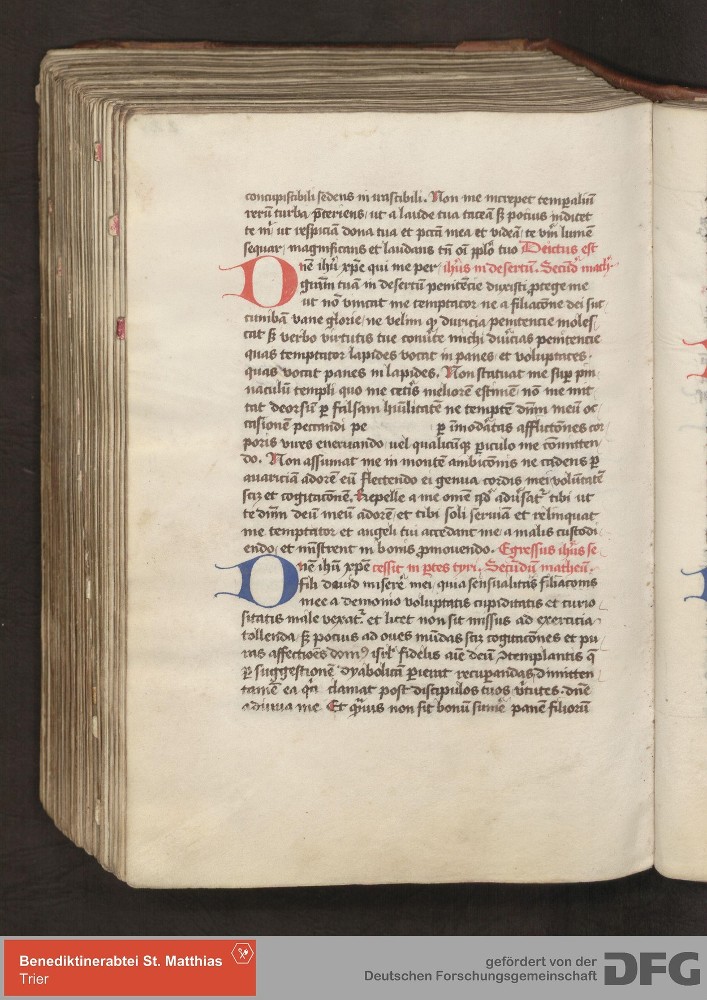 concupiscibili sedens in irascibili. Non me increpet temporaliū
rerū turba p̄teriens, ut a laude tua taceā sꝫ pocius indicet
te m̄ ut respiciā dona tua et pctā mea et videā te verū lumē
sequar, magnificans et laudans tn̄ oī pplo tuo Ductus est
Dn̄e ihū xp̄e qui me per ihūs in desertū. Secūdū math.
gr̄am tuam in desertū penitēcie duxisti ꝓtege me
ut nō vincat me temptator ne a filiacōne dei suc
cumbā vane glorie, ne velim qꝫ duricia penitencie moles
tat sꝫ verbo virtutis tue conūte michi duricias penitencie
quas temptator lapides vocat in panes et voluptates,
quas vocat panes in lapides. Non statuat me suꝑ pin
naculū templi quo me cetis meliorē estimē nō me mit
tat deorsū ꝑ falsam hūilitatē ne temptē dn̄m meū oc
casionē peccandi pe ꝑ īmodātas afflictōnes cor
poris vires enervando, uel qualicūqꝫ ꝑiculo me cōmitten
do. Non assumat me in montē ambicōnis ne cadens ꝑ
auariciā adorē eū flectendo ei genua cordis mei volūtatē
scꝫ et cogitacōnē. Repelle a me om̄e qd̄ adūsat tibi ut
te dn̄m deū meū adorē, et tibi soli seruiā et relinquat
me temptator et angeli tui accedant me a malis custodi
endo, et mīstrent in bonis ꝓmouendo. Egressus ihūs se
Dn̄e ihū xp̄e cessit in ꝑtes tyri. Secūdū matheū.
fili dauid miserē mei, quia sensualitas filiacōnis
mee a demonio voluptatis cupiditatis et curio
sitatis male vexat, et licet non sit missus ad exercicia
tollenda, sꝫ pocius ad oues mūdas scꝫ cogitacōnes et pu
ras affectiōes dom9 isrl fidelis aīe deū ꝯtemplantis q̄
ꝑ suggestionē dyabolicā ꝑierāt recuperandas dimitten
tamē ea qr̄ clamat post discipulos tuos v̄tutes, dn̄e
adiuua me. Et quis non sit bonū sumē panē filiorū
Benediktinerabtei St. Matthias
Trier
gefördert von der
Deutschen Forschungsgemeinschaft DFG